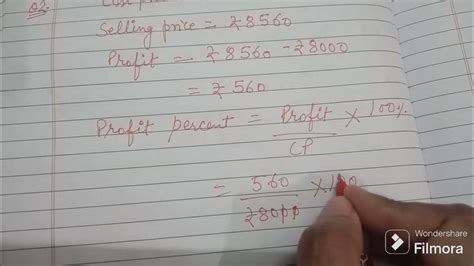 Q2.
Cost
Selling price = ₹8560
Profit = ₹8560 - ₹8000
= ₹560
Profit percent = Profit × 100%
CP
= 560 × 100
₹8000
Wondershare
Filmora